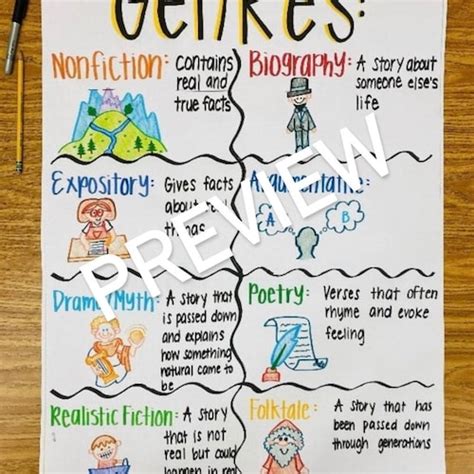 GENRES:
Nonfiction: Contains
real and
true facts
Biography: A story about
someone else's
life
Expository: Gives facts
about real
things
Argumentative:
A
B
Drama/Myth: A story that
is passed down
and explains
how something
natural came to
be
Poetry: Verses that often
rhyme and evoke
feeling
Realistic Fiction: A story
that is not
real but could
happen in real
Folktale: A story that has
been passed down
through generations
PREVIEW